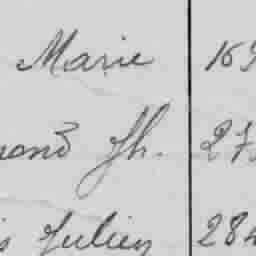 Marie 169
mond Jh. 27
is Julien 284